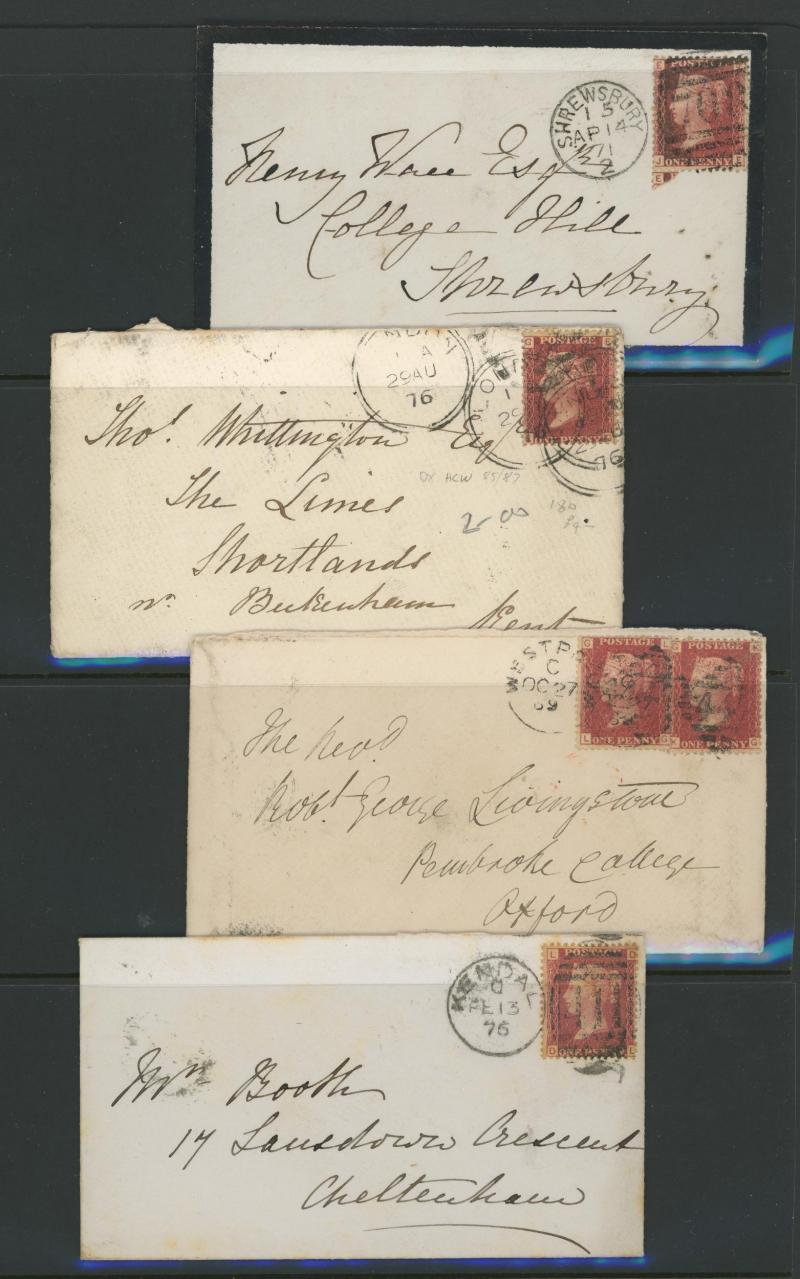 Henry Wace Esqr
College Hill
Shrewsbury
SHREWSBURY
15
AP 14
71
E E
POSTAGE
ONE PENNY
J E
Thos. Whittington Esq
The Limes
Shortlands
nr. Beckenham
Kent
29 AU
76
LOND
76
POSTAGE
2-00
The Revd
Robt. George Livingstone
Pembroke College
Oxford
C
OC 27
69
G L
POSTAGE
ONE PENNY
L G
POSTAGE
ONE PENNY
K G
Booth
17 Lansdown Crescent
Cheltenham
KENDAL
D
FE 13
76
L D
POSTAGE
ONE PENNY
D L